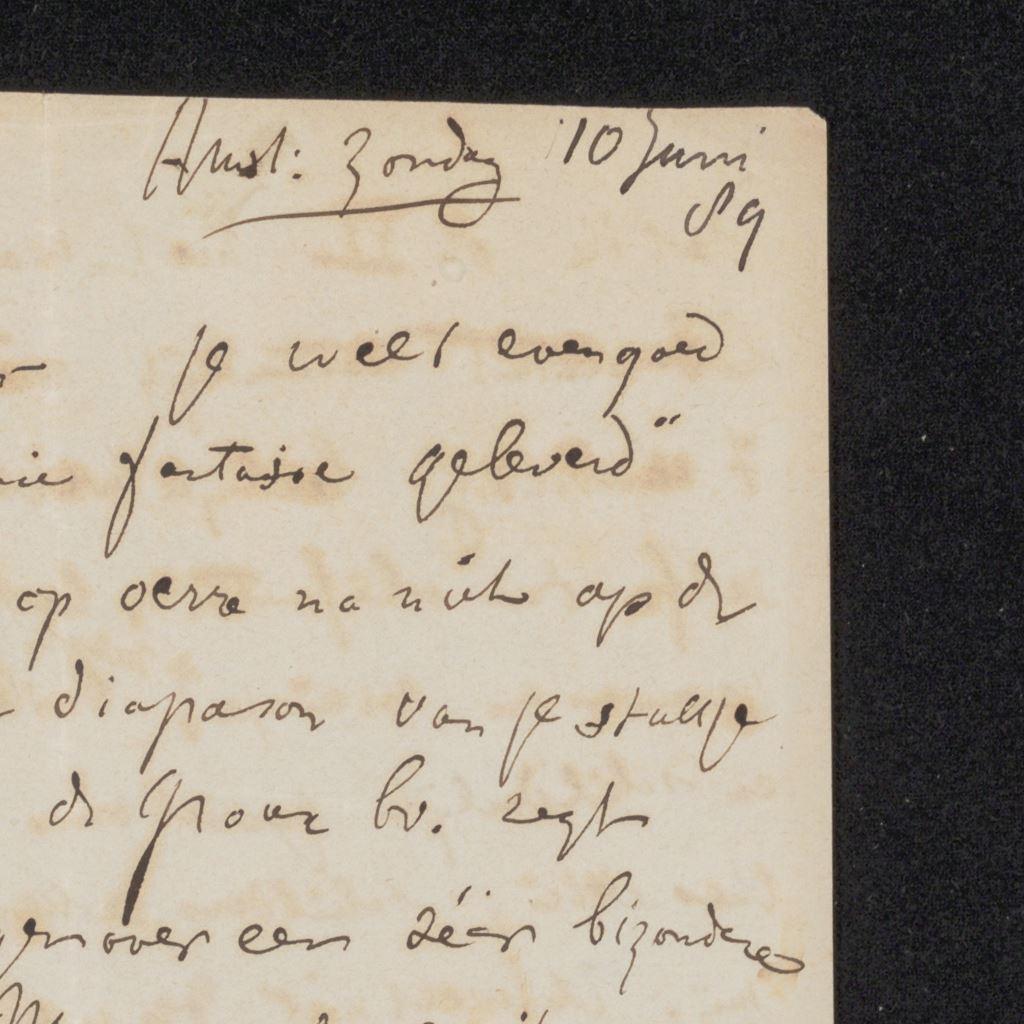 Amst: Zondag 10 Juni
89
je weet evengoed
fantaisie geleverd"
op oerre na niet op de
diapason van je stukje
de Groux bv. zegt
over een zéér bizondere